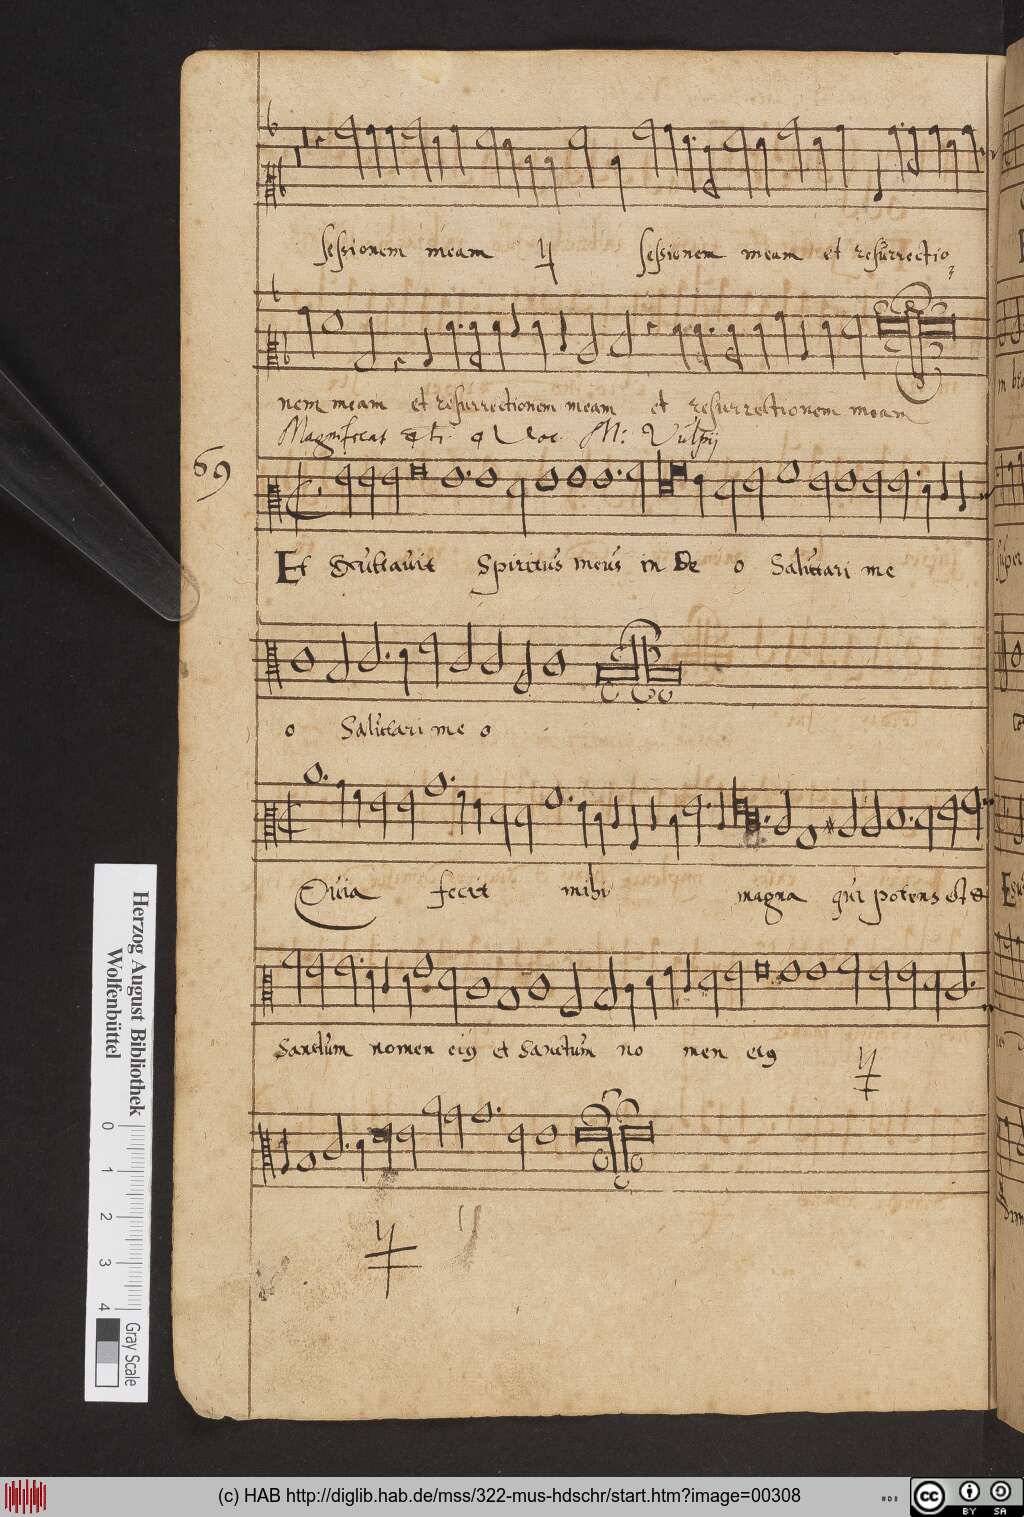 sessionem meam sessionem meam et resurrectio
nem meam et resurrectionem meam et resurrectionem meam
Magnificat 4 Voc. M: Vulpij
69
Et Exultauit Spiritus meus in De o Salutari me
o Salutari me o
Quia fecit mihi magna qui potens est et
Sanctum nomen eiq et Sanctum no men eiq
Herzog August Bibliothek
Wolfenbüttel
0 1 2 3 4
Gray Scale
(c) HAB http://diglib.hab.de/mss/322-mus-hdschr/start.htm?image=00308
cc BY SA